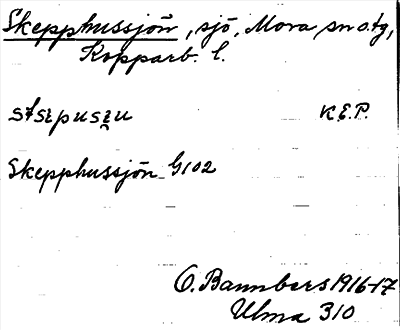 Skepphussjön, sjö, Mora sn o. tg,
Kopparb. l.
K.E.P.
Skepphussjön G102
O. Bannbers 1916-17
Ulma 310